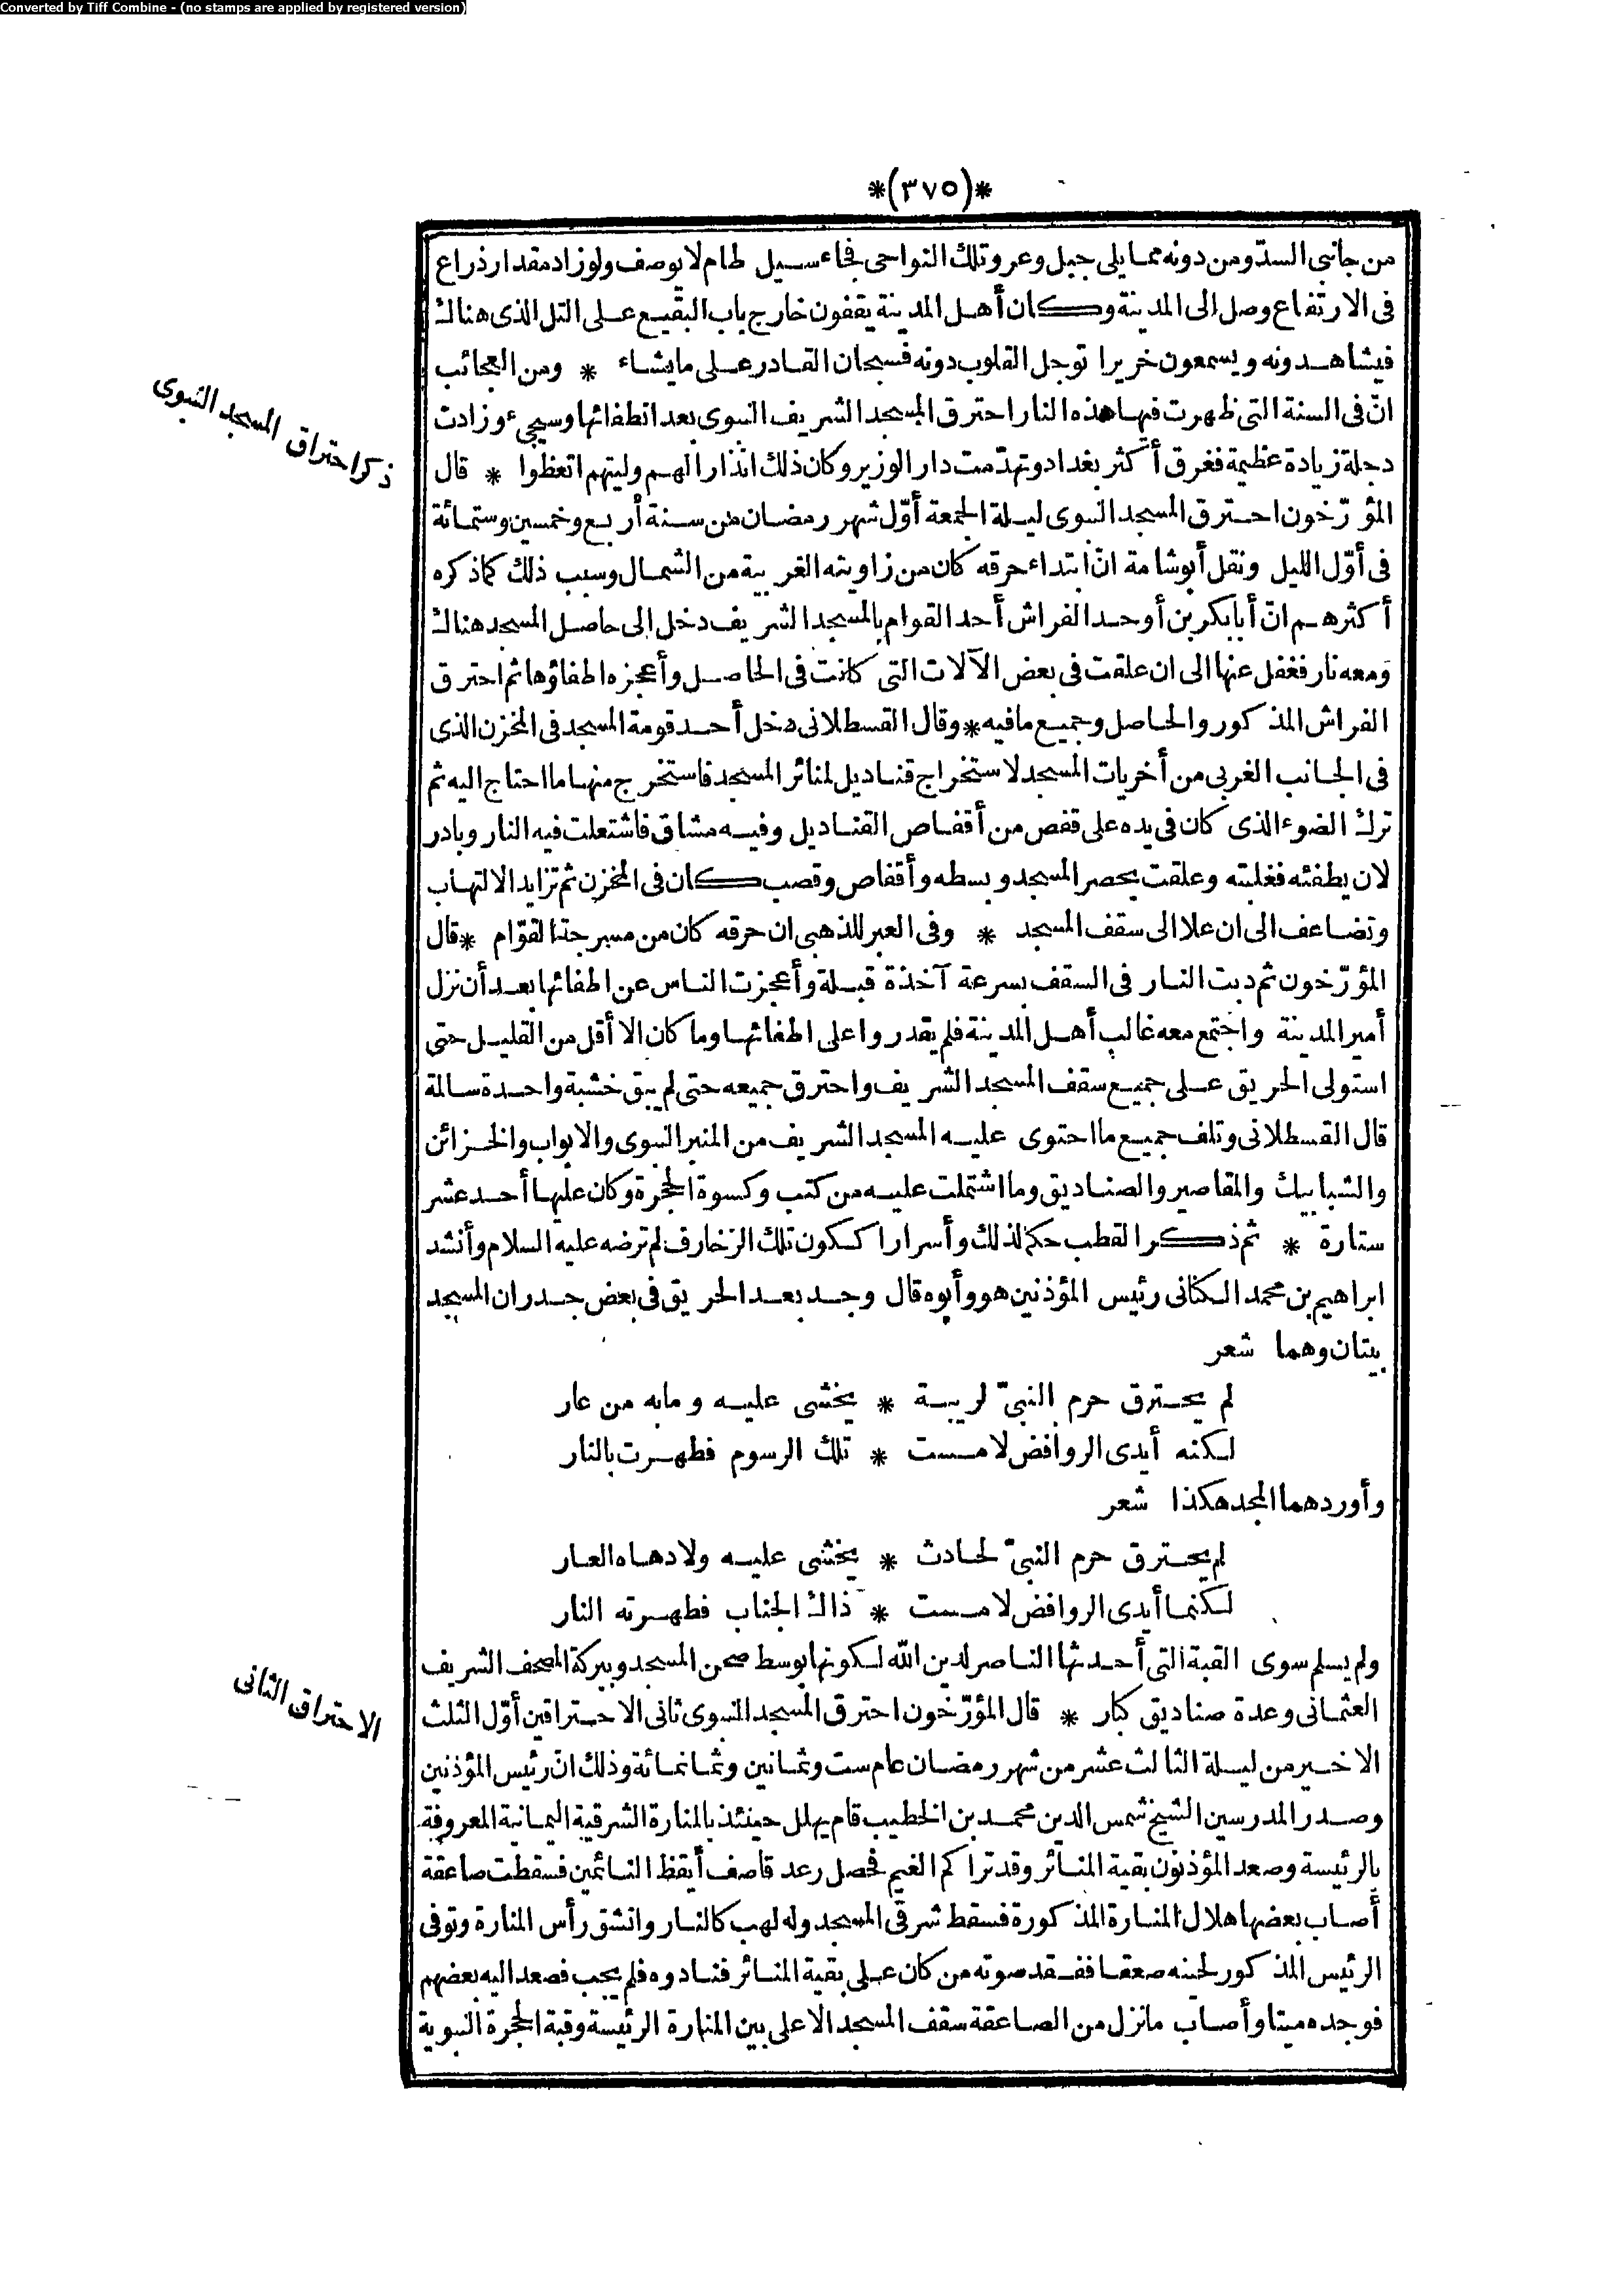 Converted by Tiff Combine - (no stamps are applied by registered version)
*(٣٧٥)*
من جانبى السدّ ومن دونه مما يلى جبل وعر وتلك النواحى فجاء سيل طام لا يوصف ولو زاد مقدار ذراع
فى الارتفاع وصل الى المدينة وكان أهل المدينة يقفون خارج باب البقيع على التل الذى هناك
فيشاهدونه ويسمعون خريرا توجل القلوب دونه فسبحان القادر على ما يشاء * ومن العجائب
انّ فى السنة التى ظهرت فيها هذه النار احترق المسجد الشريف النبوى بعد انطفائها وسيجىء وزادت
ذكر احتراق المسجد النبوى
دجلة زيادة عظيمة فغرق أكثر بغداد وتهدّمت دار الوزير وكان ذلك انذارا لهم وليتهم اتعظوا * قال
المؤرّخون احترق المسجد النبوى ليلة الجمعة أوّل شهر رمضان من سنة أربع وخمسين وستمائة
فى أوّل الليل ونقل أبو شامة انّ ابتداء حرقه كان من زاويته الغربية من الشمال وسبب ذلك كما ذكره
أكثرهم انّ أبا بكر بن أوحد الفراش أحد القوام بالمسجد الشريف دخل الى حاصل المسجد هناك
ومعه نار فغفل عنها الى ان علقت فى بعض الآلات التى كانت فى الحاصل وأعجزه اطفاؤها ثم احترق
الفراش المذكور والحاصل وجميع ما فيه * وقال القسطلانى دخل أحد قومة المسجد فى المخزن الذى
فى الجانب الغربى من أخريات المسجد لاستخراج قناديل لمنائر المسجد فاستخرج منها ما احتاج اليه ثم
ترك الضوء الذى كان فى يده على قفص من أقفاص القناديل وفيه مشاق فاشتعلت فيه النار وبادر
لان يطفئه فغلبته وعلقت بحصر المسجد وبسطه وأقفاص وقصب كان فى المخزن ثم تزايد الالتهاب
وتضاعف الى ان علا الى سقف المسجد * وفى العبر للذهبى ان حرقه كان من مسرجة القوّام * قال
المؤرّخون ثم دبت النار فى السقف بسرعة آخذة قبلة وأعجزت الناس عن اطفائها بعد أن نزل
أمير المدينة واجتمع معه غالب أهل المدينة فلم يقدروا على اطفائها وما كان الا أقل من القليل حتى
استولى الحريق على جميع سقف المسجد الشريف واحترق جميعه حتى لم يبق خشبة واحدة سالمة
قال القسطلانى وتلف جميع ما احتوى عليه المسجد الشريف من المنبر النبوى والابواب والخزائن
والشبابيك والمقاصير والصناديق وما اشتملت عليه من كتب وكسوة الحجرة وكان عليها أحد عشر
ستارة * ثم ذكر القطب حكما لذلك وأسرارا ككون تلك الزخارف لم ترضه عليه السلام وأنشد
ابراهيم بن محمد الكنانى رئيس المؤذنين هو وأبوه قال وجد بعد الحريق فى بعض جدران المسجد
بيتان وهما شعر
لم يحترق حرم النبىّ لريبة * يخشى عليه وما به من عار
لكنه أيدى الروافض لامست * تلك الرسوم فطهرت بالنار
وأوردهما المجد هكذا شعر
لم يحترق حرم النبىّ لحادث * يخشى عليه ولا دهاه العار
لكنما أيدى الروافض لامست * ذاك الجناب فطهرته النار
ولم يسلم سوى القبة التى أحدثها الناصر لدين الله لكونها بوسط صحن المسجد وببركة المصحف الشريف
الاحتراق الثانى
العثمانى وعدة صناديق كبار * قال المؤرّخون احترق المسجد النبوى ثانى الاحتراقين أوّل الثلث
الاخير من ليلة الثالث عشر من شهر رمضان عام ست وثمانين وثمانمائة وذلك انّ رئيس المؤذنين
وصدر المدرسين الشيخ شمس الدين محمد بن الخطيب قام يهلل حينئذ بالمنارة الشرقية اليمانية المعروفة
بالرئيسة وصعد المؤذنون بقية المنائر وقد تراكم الغيم فحصل رعد قاصف أيقظ النائمين فسقطت صاعقة
أصاب بعضها هلال المنارة المذكورة فسقط شرقى المسجد وله لهب كالنار وانشق رأس المنارة وتوفى
الرئيس المذكور لحينه صعقا ففقد صوته من كان على بقية المنائر فنادوه فلم يجب فصعد اليه بعضهم
فوجده ميتا وأصاب ما نزل من الصاعقة سقف المسجد الاعلى بين المنارة الرئيسة وقبة الحجرة النبوية